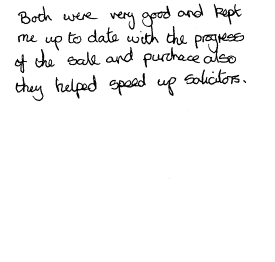 Both were very good and kept
me up to date with the progress
of the sale and purchace also
they helped speed up solicitors.